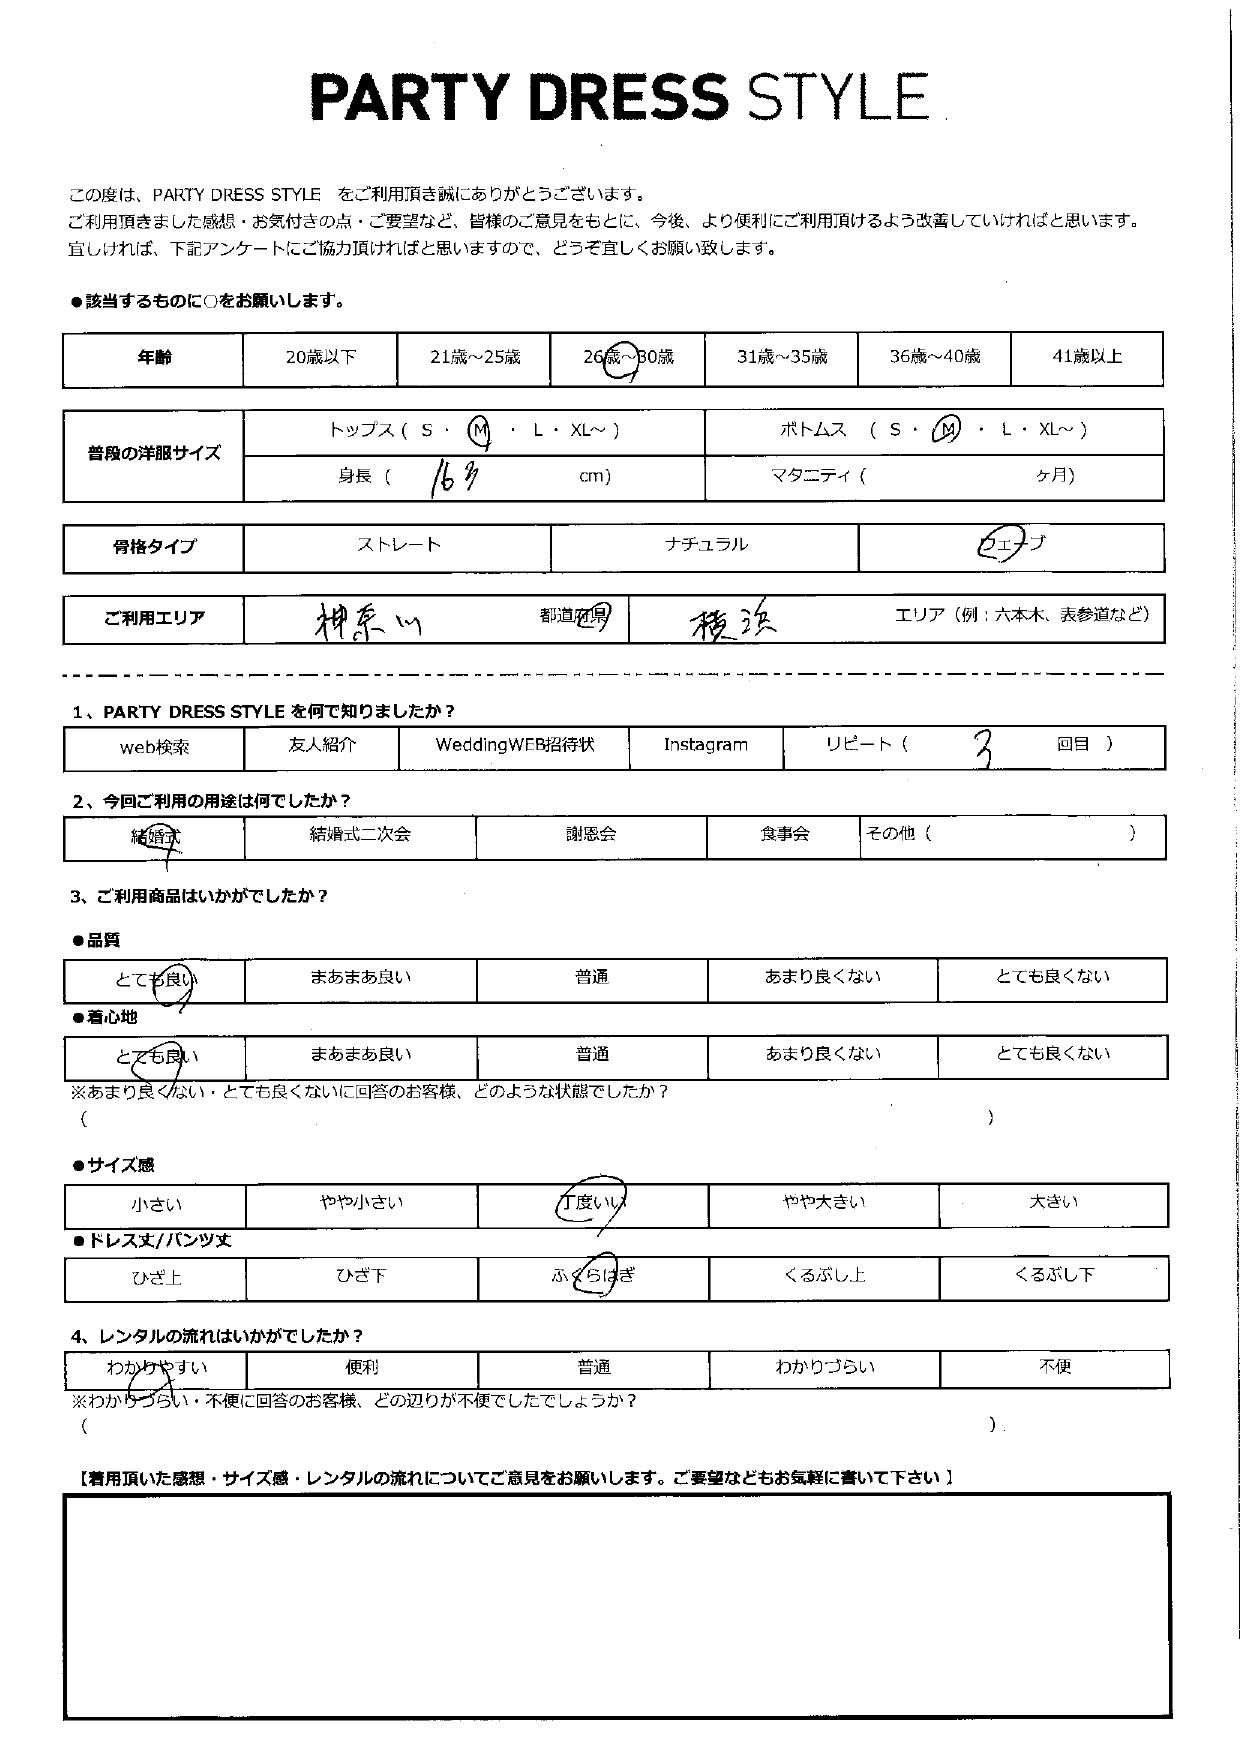 PARTY DRESS STYLE
この度は、PARTY DRESS STYLE をご利用頂き誠にありがとうございます。
ご利用頂きました感想・お気付きの点・ご要望など、皆様のご意見をもとに、今後、より便利にご利用頂けるよう改善していければと思います。
宜しければ、下記アンケートにご協力頂ければと思いますので、どうぞ宜しくお願い致します。
●該当するものに○をお願いします。
年齢 20歳以下 21歳～25歳 26歳～30歳 31歳～35歳 36歳～40歳 41歳以上
普段の洋服サイズ トップス ( S ・ M ・ L ・ XL～ ) ボトムス ( S ・ M ・ L ・ XL～ )
身長 ( 163 cm) マタニティ ( ヶ月)
骨格タイプ ストレート ナチュラル ウェーブ
ご利用エリア 神奈川 都道府県 横浜 エリア（例：六本木、表参道など）
1、PARTY DRESS STYLE を何で知りましたか？
web検索 友人紹介 WeddingWEB招待状 Instagram リピート ( 3 回目 )
2、今回ご利用の用途は何でしたか？
結婚式 結婚式二次会 謝恩会 食事会 その他 ( )
3、ご利用商品はいかがでしたか？
●品質
とても良い まあまあ良い 普通 あまり良くない とても良くない
●着心地
とても良い まあまあ良い 普通 あまり良くない とても良くない
※あまり良くない・とても良くないに回答のお客様、どのような状態でしたか？
( )
●サイズ感
小さい やや小さい 丁度いい やや大きい 大きい
●ドレス丈/パンツ丈
ひざ上 ひざ下 ふくらはぎ くるぶし上 くるぶし下
4、レンタルの流れはいかがでしたか？
わかりやすい 便利 普通 わかりづらい 不便
※わかりづらい・不便に回答のお客様、どの辺りが不便でしたでしょうか？
( )
【着用頂いた感想・サイズ感・レンタルの流れについてご意見をお願いします。ご要望などもお気軽に書いて下さい】